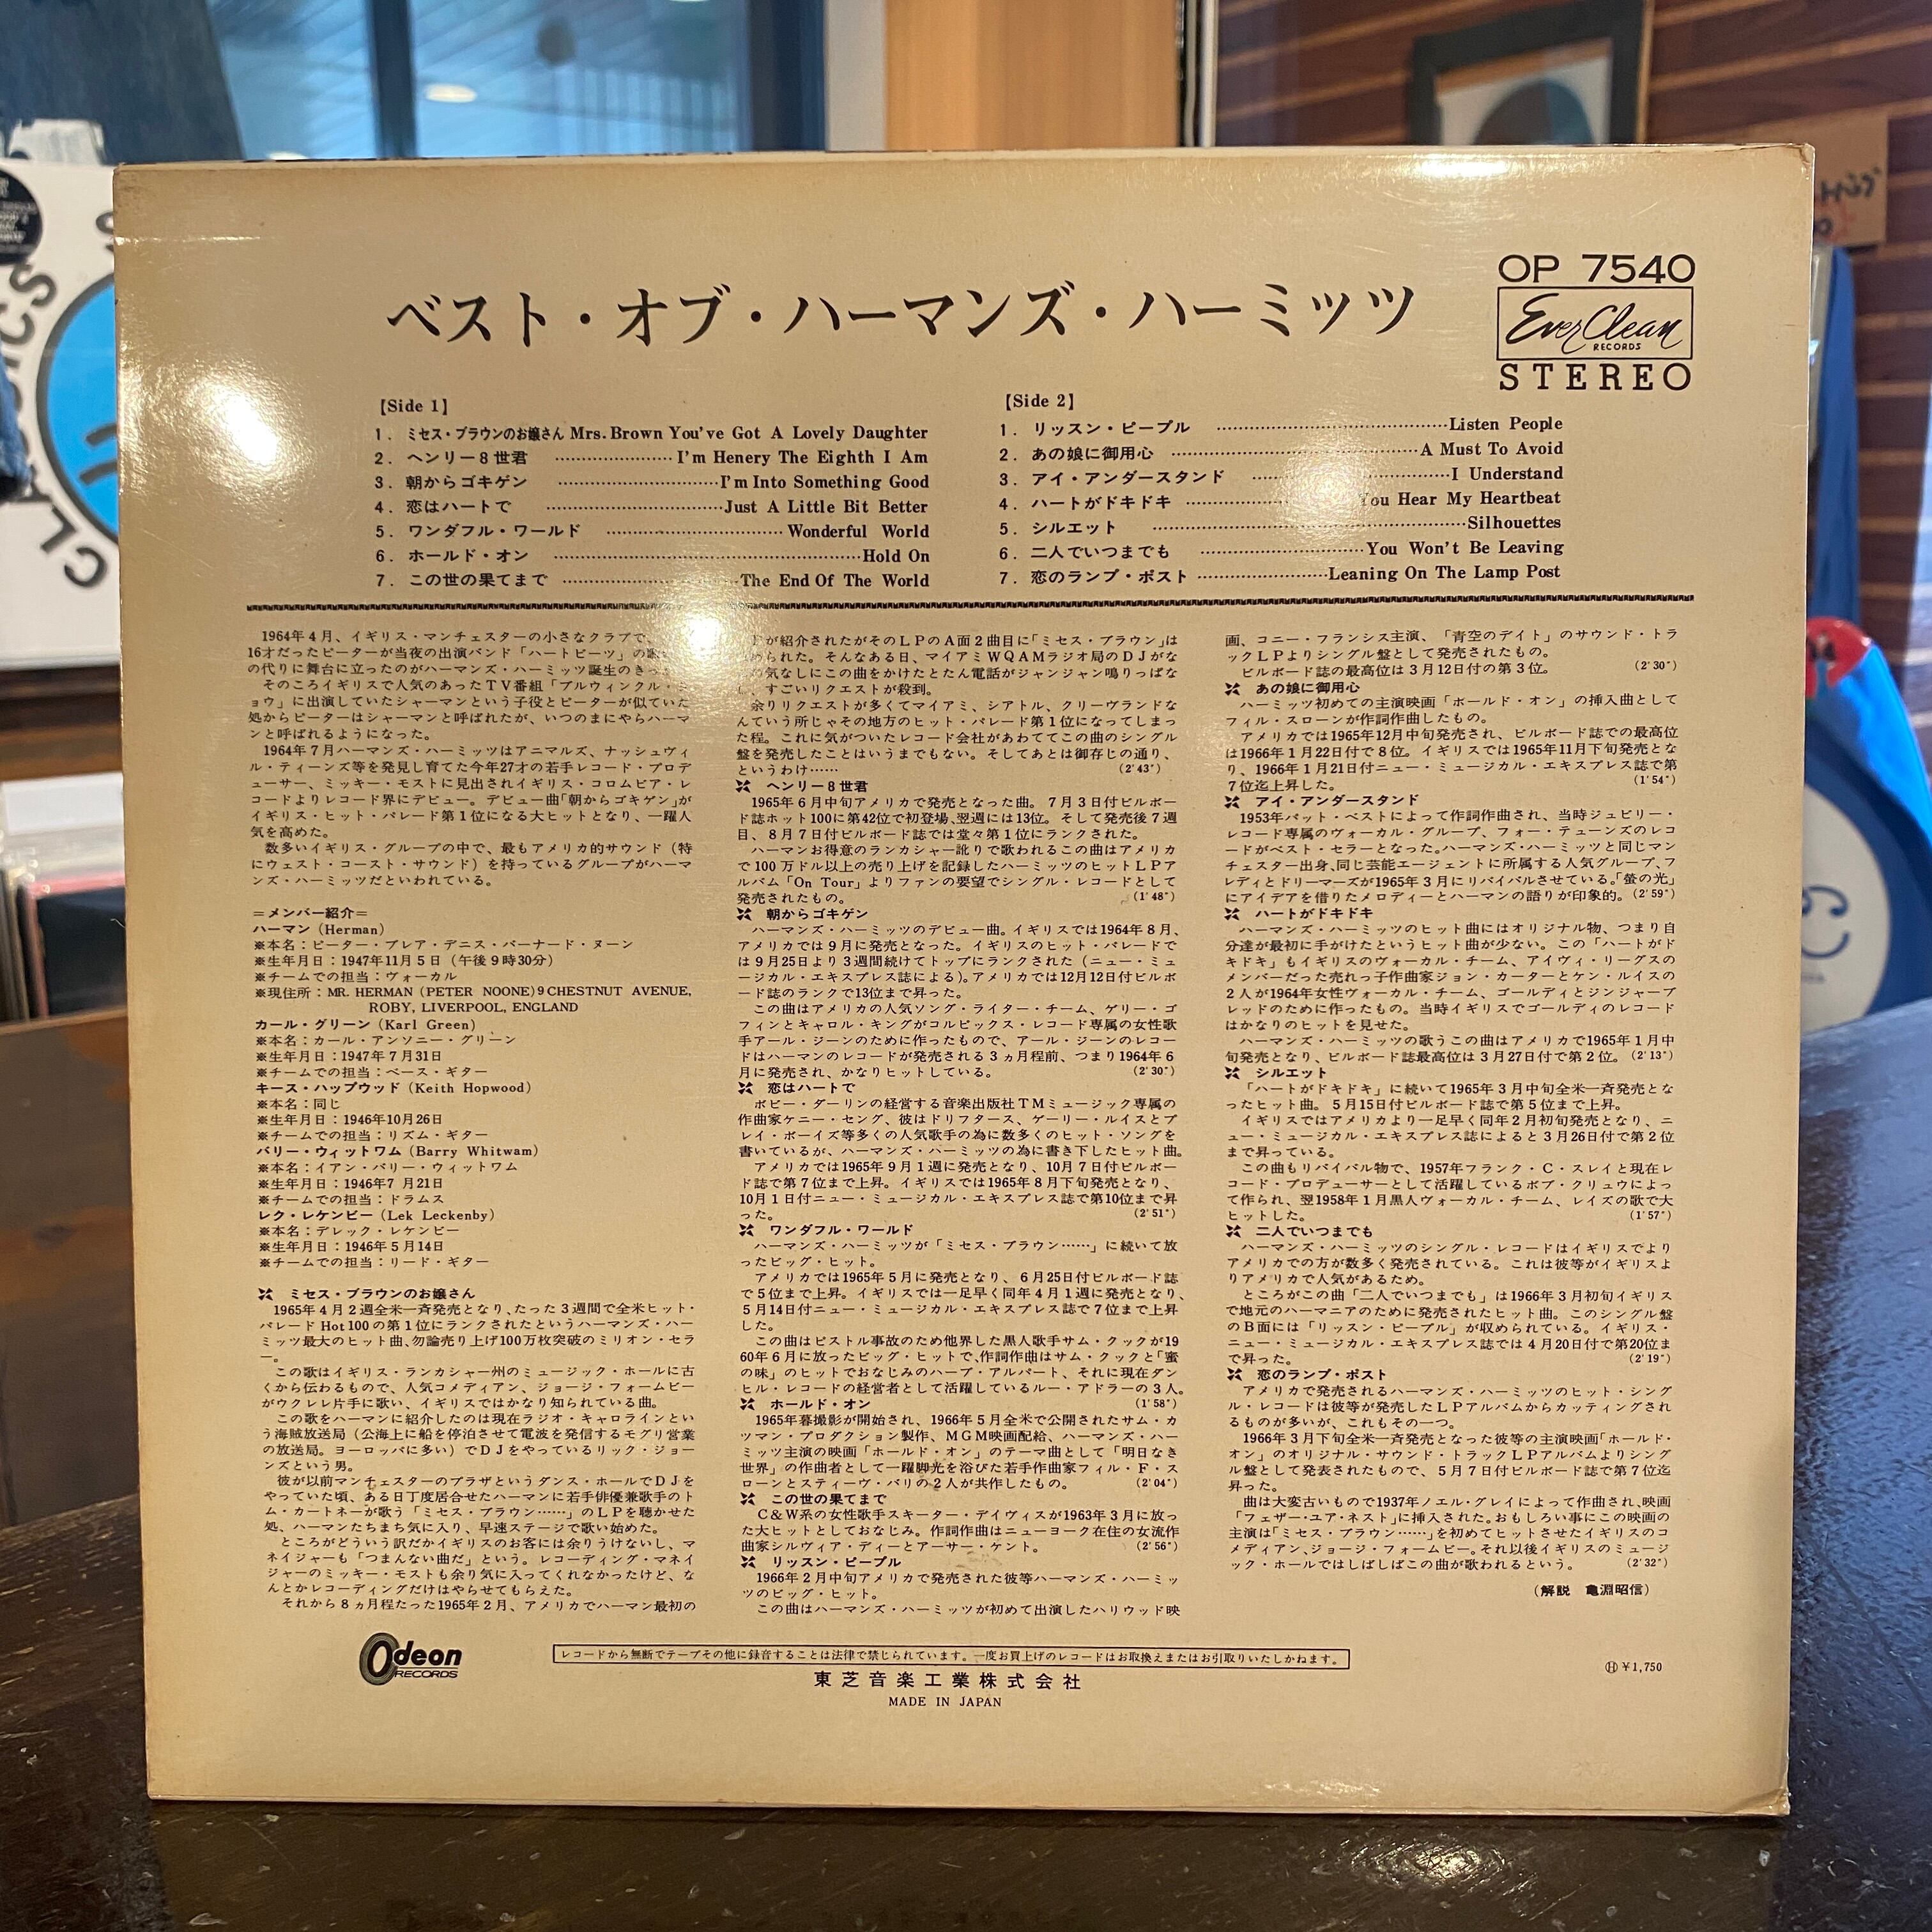 ベスト・オブ・ハーマンズ・ハーミッツ
OP 7540
Ever Clean
RECORDS
STEREO
【Side 1】
1. ミセス・ブラウンのお嬢さん Mrs. Brown You've Got A Lovely Daughter
2. ヘンリー8世君 ……………… I'm Henery The Eighth I Am
3. 朝からゴキゲン ……………… I'm Into Something Good
4. 恋はハートで ……………… Just A Little Bit Better
5. ワンダフル・ワールド ……………… Wonderful World
6. ホールド・オン ……………… Hold On
7. この世の果てまで ……………… The End Of The World
【Side 2】
1. リッスン・ピープル ……………… Listen People
2. あの娘に御用心 ……………… A Must To Avoid
3. アイ・アンダースタンド ……………… I Understand
4. ハートがドキドキ ……………… You Hear My Heartbeat
5. シルエット ……………… Silhouettes
6. 二人でいつまでも ……………… You Won't Be Leaving
7. 恋のランプ・ポスト ……………… Leaning On The Lamp Post
1964年4月、イギリス・マンチェスターの小さなクラブで、
16才だったピーターが当夜の出演バンド「ハートビーツ」の歌
の代りに舞台に立ったのがハーマンズ・ハーミッツ誕生のきっ
そのころイギリスで人気のあったTV番組「ブルウィンクル・
ョウ」に出演していたシャーマンという子役とピーターが似ていた
処からピーターはシャーマンと呼ばれたが、いつのまにやらハーマ
ンと呼ばれるようになった。
1964年7月ハーマンズ・ハーミッツはアニマルズ、ナッシュヴィ
ル・ティーンズ等を発見し育てた今年27才の若手レコード・プロデ
ューサー、ミッキー・モストに見出されイギリス・コロムビア・レ
コードよりレコード界にデビュー。デビュー曲「朝からゴキゲン」が
イギリス・ヒット・パレード第1位になる大ヒットとなり、一躍人
気を高めた。
数多いイギリス・グループの中で、最もアメリカ的サウンド（特
にウェスト・コースト・サウンド）を持っているグループがハーマ
ンズ・ハーミッツだといわれている。
＝メンバー紹介＝
ハーマン（Herman）
※本名：ピーター・ブレア・デニス・バーナード・ヌーン
※生年月日：1947年11月5日（午後9時30分）
※チームでの担当：ヴォーカル
※現住所：MR. HERMAN (PETER NOONE) 9 CHESTNUT AVENUE,
ROBY, LIVERPOOL, ENGLAND
カール・グリーン（Karl Green）
※本名：カール・アンソニー・グリーン
※生年月日：1947年7月31日
※チームでの担当：ベース・ギター
キース・ハップウッド（Keith Hopwood）
※本名：同じ
※生年月日：1946年10月26日
※チームでの担当：リズム・ギター
バリー・ウィットワム（Barry Whitwam）
※本名：イアン・バリー・ウィットワム
※生年月日：1946年7月21日
※チームでの担当：ドラムス
レク・レケンビー（Lek Leckenby）
※本名：デレック・レケンビー
※生年月日：1946年5月14日
※チームでの担当：リード・ギター
ミセス・ブラウンのお嬢さん
1965年4月2週全米一斉発売となり、たった3週間で全米ヒット・
パレード Hot 100の第1位にランクされたというハーマンズ・ハー
ミッツ最大のヒット曲、勿論売り上げ100万枚突破のミリオン・セラ
ー。
この歌はイギリス・ランカシャー州のミュージック・ホールに古
くから伝わるもので、人気コメディアン、ジョージ・フォームビー
がウクレレ片手に歌い、イギリスではかなり知られている曲。
この歌をハーマンに紹介したのは現在ラジオ・キャロラインとい
う海賊放送局（公海上に船を停泊させて電波を発信するモグリ営業
の放送局。ヨーロッパに多い）でDJをやっているリック・ジョー
ンズという男。
彼が以前マンチェスターのプラザというダンス・ホールでDJを
やっていた頃、ある日丁度居合せたハーマンに若手俳優兼歌手のト
ム・カートネーが歌う「ミセス・ブラウン……」のLPを聴かせた
処、ハーマンたちまち気に入り、早速ステージで歌い始めた。
ところがどういう訳だかイギリスのお客には余りうけないし、マ
ネイジャーも「つまんない曲だ」という。レコーディング・マネイ
ジャーのミッキー・モストも余り気に入ってくれなかったけど、な
んとかレコーディングだけはやらせてもらえた。
それから8ヵ月程たった1965年2月、アメリカでハーマン最初の
ドが紹介されたがそのLPのA面2曲目に「ミセス・ブラウン」は
められた。そんなある日、マイアミWQAMラジオ局のDJがな
気なしにこの曲をかけたとたん電話がジャンジャン鳴りっぱな
し、すごいリクエストが殺到。
余りリクエストが多くてマイアミ、シアトル、クリーヴランドな
んていう所じゃその地方のヒット・パレード第1位になってしまっ
た程。これに気がついたレコード会社があわててこの曲のシングル
盤を発売したことはいうまでもない。そしてあとは御存じの通り、
というわけ…… （2′43″）
ヘンリー8世君
1965年6月中旬アメリカで発売となった曲。7月3日付ビルボー
ド誌ホット100に第42位で初登場、翌週には13位。そして発売後7週
目、8月7日付ビルボード誌では堂々第1位にランクされた。
ハーマンお得意のランカシャー訛りで歌われるこの曲はアメリカ
で100万ドル以上の売り上げを記録したハーミッツのヒットLPア
ルバム「On Tour」よりファンの要望でシングル・レコードとして
発売されたもの。 （1′48″）
朝からゴキゲン
ハーマンズ・ハーミッツのデビュー曲。イギリスでは1964年8月、
アメリカでは9月に発売となった。イギリスのヒット・パレードで
は9月25日より3週間続けてトップにランクされた（ニュー・ミュ
ージカル・エキスプレス誌による）。アメリカでは12月12日付ビルボ
ード誌のランクで13位まで昇った。
この曲はアメリカの人気ソング・ライター・チーム、ゲリー・ゴ
フィンとキャロル・キングがコルピックス・レコード専属の女性歌
手アール・ジーンのために作ったもので、アール・ジーンのレコー
ドはハーマンのレコードが発売される3ヵ月程前、つまり1964年6
月に発売され、かなりヒットしている。 （2′30″）
恋はハートで
ボビー・ダーリンの経営する音楽出版社TMミュージック専属の
作曲家ケニー・セング、彼はドリフタース、ゲーリー・ルイスとプ
レイ・ボーイズ等多くの人気歌手の為に数多くのヒット・ソングを
書いているが、ハーマンズ・ハーミッツの為に書き下したヒット曲。
アメリカでは1965年9月1週に発売となり、10月7日付ビルボー
ド誌で第7位まで上昇。イギリスでは1965年8月下旬発売となり、
10月1日付ニュー・ミュージカル・エキスプレス誌で第10位まで昇
った。 （2′51″）
ワンダフル・ワールド
ハーマンズ・ハーミッツが「ミセス・ブラウン……」に続いて放
ったビッグ・ヒット。
アメリカでは1965年5月に発売となり、6月25日付ビルボード誌
で5位まで上昇。イギリスでは一足早く同年4月1週に発売となり、
5月14日付ニュー・ミュージカル・エキスプレス誌で7位まで上昇
した。
この曲はピストル事故のため他界した黒人歌手サム・クックが19
60年6月に放ったビッグ・ヒットで、作詞作曲はサム・クックと「蜜
の味」のヒットでおなじみのハーブ・アルパート、それに現在ダン
ヒル・レコードの経営者として活躍しているルー・アドラーの3人。
（1′58″）
ホールド・オン
1965年暮撮影が開始され、1966年5月全米で公開されたサム・カ
ツマン・プロダクション製作、MGM映画配給、ハーマンズ・ハー
ミッツ主演の映画「ホールド・オン」のテーマ曲として「明日なき
世界」の作曲者として一躍脚光を浴びた若手作曲家フィル・F・ス
ローンとスティーヴ・バリの2人が共作したもの。 （2′04″）
この世の果てまで
C&W系の女性歌手スキーター・デイヴィスが1963年3月に放っ
た大ヒットとしておなじみ。作詞作曲はニューヨーク在住の女流作
曲家シルヴィア・ディーとアーサー・ケント。 （2′56″）
リッスン・ピープル
1966年2月中旬アメリカで発売された彼等ハーマンズ・ハーミッ
ツのビッグ・ヒット。
この曲はハーマンズ・ハーミッツが初めて出演したハリウッド映
画、コニー・フランシス主演、「青空のデイト」のサウンド・トラ
ックLPよりシングル盤として発売されたもの。
ビルボード誌の最高位は3月12日付の第3位。 （2′30″）
あの娘に御用心
ハーミッツ初めての主演映画「ホールド・オン」の挿入曲として
フィル・スローンが作詞作曲したもの。
アメリカでは1965年12月中旬発売され、ビルボード誌での最高位
は1966年1月22日付で8位。イギリスでは1965年11月下旬発売とな
り、1966年1月21日付ニュー・ミュージカル・エキスプレス誌で第
7位迄上昇した。 （1′54″）
アイ・アンダースタンド
1953年パット・ベストによって作詞作曲され、当時ジュビリー・
レコード専属のヴォーカル・グループ、フォー・テューンズのレコ
ードがベスト・セラーとなった。ハーマンズ・ハーミッツと同じマン
チェスター出身、同じ芸能エージェントに所属する人気グループ、フ
レディとドリーマーズが1965年3月にリバイバルさせている。「螢の光」
にアイデアを借りたメロディーとハーマンの語りが印象的。（2′59″）
ハートがドキドキ
ハーマンズ・ハーミッツのヒット曲にはオリジナル物、つまり自
分達が最初に手がけたというヒット曲が少ない。この「ハートがド
キドキ」もイギリスのヴォーカル・チーム、アイヴィ・リーグスの
メンバーだった売れっ子作曲家ジョン・カーターとケン・ルイスの
2人が1964年女性ヴォーカル・チーム、ゴールディとジンジャーブ
レッドのために作ったもの。当時イギリスでゴールディのレコード
はかなりのヒットを見せた。
ハーマンズ・ハーミッツの歌うこの曲はアメリカで1965年1月中
旬発売となり、ビルボード誌最高位は3月27日付で第2位。（2′13″）
シルエット
「ハートがドキドキ」に続いて1965年3月中旬全米一斉発売とな
ったヒット曲。5月15日付ビルボード誌で第5位まで上昇。
イギリスではアメリカより一足早く同年2月初旬発売となり、ニ
ュー・ミュージカル・エキスプレス誌によると3月26日付で第2位
まで昇っている。
この曲もリバイバル物で、1957年フランク・C・スレイと現在レ
コード・プロデューサーとして活躍しているボブ・クリュウによっ
て作られ、翌1958年1月黒人ヴォーカル・チーム、レイズの歌で大
ヒットした。 （1′57″）
二人でいつまでも
ハーマンズ・ハーミッツのシングル・レコードはイギリスでより
アメリカでの方が数多く発売されている。これは彼等がイギリスよ
りアメリカで人気があるため。
ところがこの曲「二人でいつまでも」は1966年3月初旬イギリス
で地元のハーマニアのために発売されたヒット曲。このシングル盤
のB面には「リッスン・ピープル」が収められている。イギリス・
ニュー・ミュージカル・エキスプレス誌では4月20日付で第20位ま
で昇った。 （2′19″）
恋のランプ・ポスト
アメリカで発売されるハーマンズ・ハーミッツのヒット・シング
ル・レコードは彼等が発売したLPアルバムからカッティングされ
るものが多いが、これもその一つ。
1966年3月下旬全米一斉発売となった彼等の主演映画「ホールド・
オン」のオリジナル・サウンド・トラックLPアルバムよりシング
ル盤として発表されたもので、5月7日付ビルボード誌で第7位迄
昇った。
曲は大変古いもので1937年ノエル・グレイによって作曲され、映画
「フェザー・ユア・ネスト」に挿入された。おもしろい事にこの映画の
主演は「ミセス・ブラウン……」を初めてヒットさせたイギリスのコ
メディアン、ジョージ・フォームビー。それ以後イギリスのミュージ
ック・ホールではしばしばこの曲が歌われるという。 （2′32″）
（解説 亀渕昭信）
Odeon
RECORDS
レコードから無断でテープその他に録音することは法律で禁じられています。一度お買上げのレコードはお取換えまたはお引取りいたしかねます。
東芝音楽工業株式会社
MADE IN JAPAN
Ⓗ ¥1,750
CLASSICS